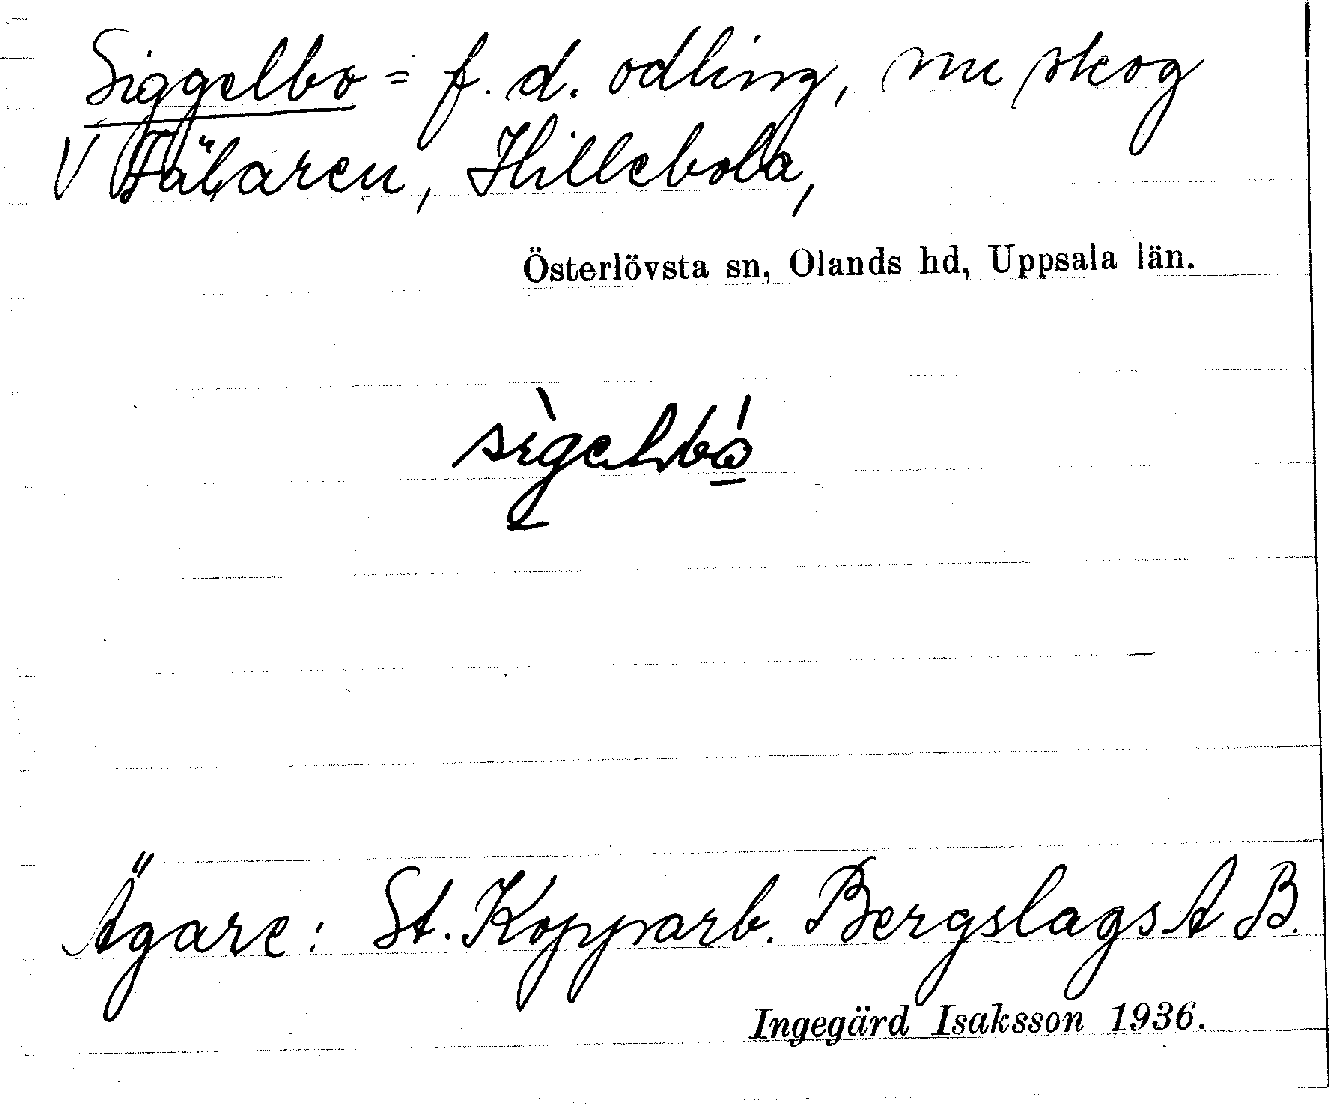 Siggelbo = f. d. odling, nu skog
V Fälaren, Hillebola,
Österlövsta sn, Olands hd, Uppsala län.
sìgelbó
Ägare: St. Kopparb. Bergslags A B.
Ingegärd Isaksson 1936.